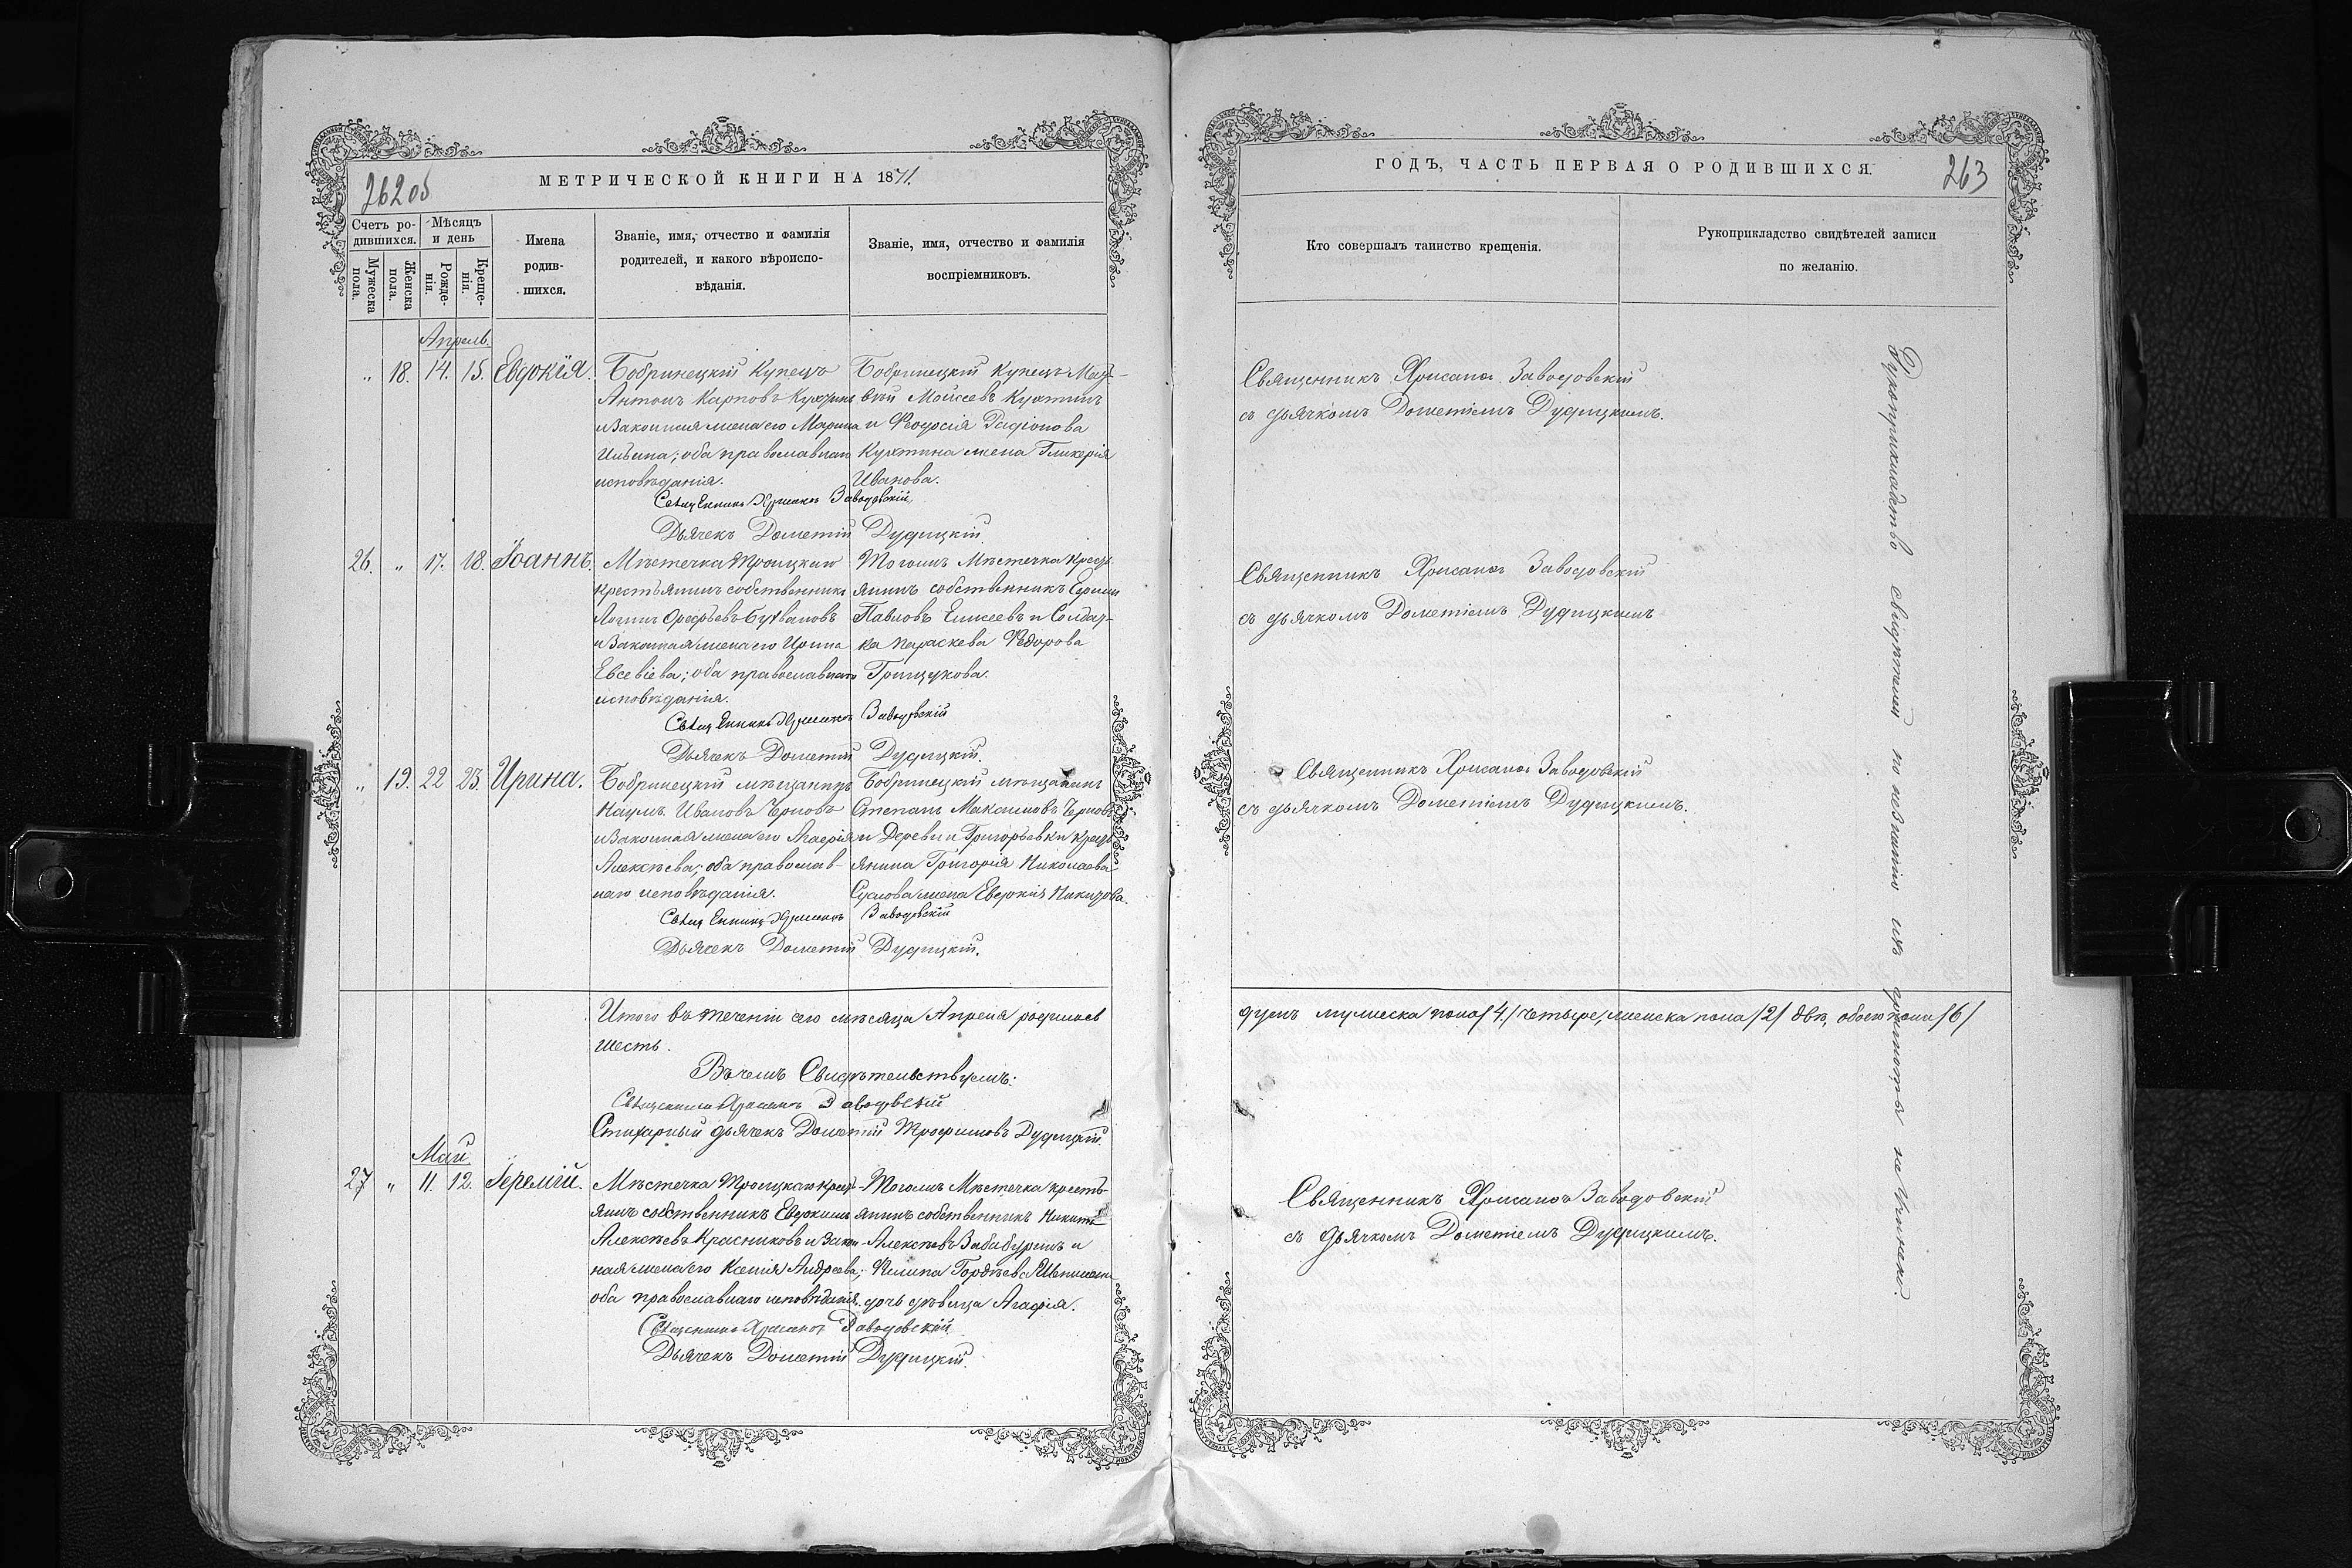 262об
МЕТРИЧЕСКОЙ КНИГИ НА 1871.
Счетъ ро-
дившихся.
Мѣсяцъ
и день
Мужеска
пола.
Женска
пола.
Рожде-
нія.
Креще-
нія.
Имена
родив-
шихся.
Званіе, имя, отчество и фамилія
родителей, и какого вѣроиспо-
вѣданія.
Званіе, имя, отчество и фамилія
воспріемниковъ.
Апрель.
" 18. 14. 15. Евдокія.
Бобринецкій Купецъ
Антонъ Карповъ
и Законная жена его Марина
Ильина; оба православнаго
исповѣданія.
Бобринецкій Купецъ Мат-
вѣй Моисеевъ Кухтинъ
и Феодосія Радіонова
Кухтина жена Гликерія
Иванова.
Священникъ Хрисанфъ Заводовскій
Дьячекъ Дометій Дудицкій.
26. " 17. 18. Іоаннъ.
Мѣстечка Троицкаго
крестьянинъ собственникъ
Логинъ
и Законная жена его Ирина
Евсевіева; оба православнаго
исповѣданія.
Тогожъ Мѣстечка Крест-
янинъ собственникъ Ефимъ
Павловъ Елисеевъ и Солдат-
ка Параскева Федорова
Грищукова.
Священникъ Хрисанфъ Заводовскій
Дьячекъ Дометій Дудицкій.
" 19. 22 23. Ирина.
Бобринецкій мѣщанинъ
Наумъ Ивановъ Черновъ
и Законная жена его Агафія
Алексѣева; оба православ-
наго исповѣданія.
Бобринецкій мѣщанинъ
Степанъ Максимовъ Черновъ
и Деревни Григорьевки Крест-
янина Григорія Николаева
Суслова жена Евдокія
Священникъ Хрисанфъ Заводовскій
Дьячекъ Дометій Дудицкій.
Итого въ теченіи сего мѣсяца Апреля родилось
шесть.
Въ чемъ Свидѣтельствуемъ:
Священникъ Хрисанфъ Заводовскій
Стихарный дьячекъ Дометій Трофимовъ Дудицкій.
Май
27 " 11. 12. Іеремій.
Мѣстечка Троицкаго крест-
янинъ собственникъ Евдокимъ
Алексѣевъ Красниковъ и Закон-
ная жена его Ксенія Андреева;
оба православнаго исповѣданія.
Тогожъ Мѣстечка кресть-
янинъ собственникъ Никита
Алексѣевъ Забабуринъ и
Гордѣева
дочь дѣвица Агафія.
Священникъ Хрисанфъ Заводовскій
Дьячекъ Дометій Дудицкій.
ГОДЪ, ЧАСТЬ ПЕРВАЯ О РОДИВШИХСЯ.
263
Кто совершалъ таинство крещенія.
Рукоприкладство свидѣтелей записи
по желанію.
Священникъ Хрисанфъ Заводовскій
съ дьячкомъ Дометіемъ Дудицкимъ.
Священникъ Хрисанфъ Заводовскій
съ дьячкомъ Дометіемъ Дудицкимъ
Священникъ Хрисанфъ Заводовскій
съ дьячкомъ Дометіемъ Дудицкимъ.
душъ мужеска пола /4/ четыре, женска пола /2/ двѣ, обоего пола /6/
Священникъ Хрисанфъ Заводовскій
съ дьячкомъ Дометіемъ Дудицкимъ.
Рукоприкладство свидѣтелей по незнанію ихъ грамоты не учинено.